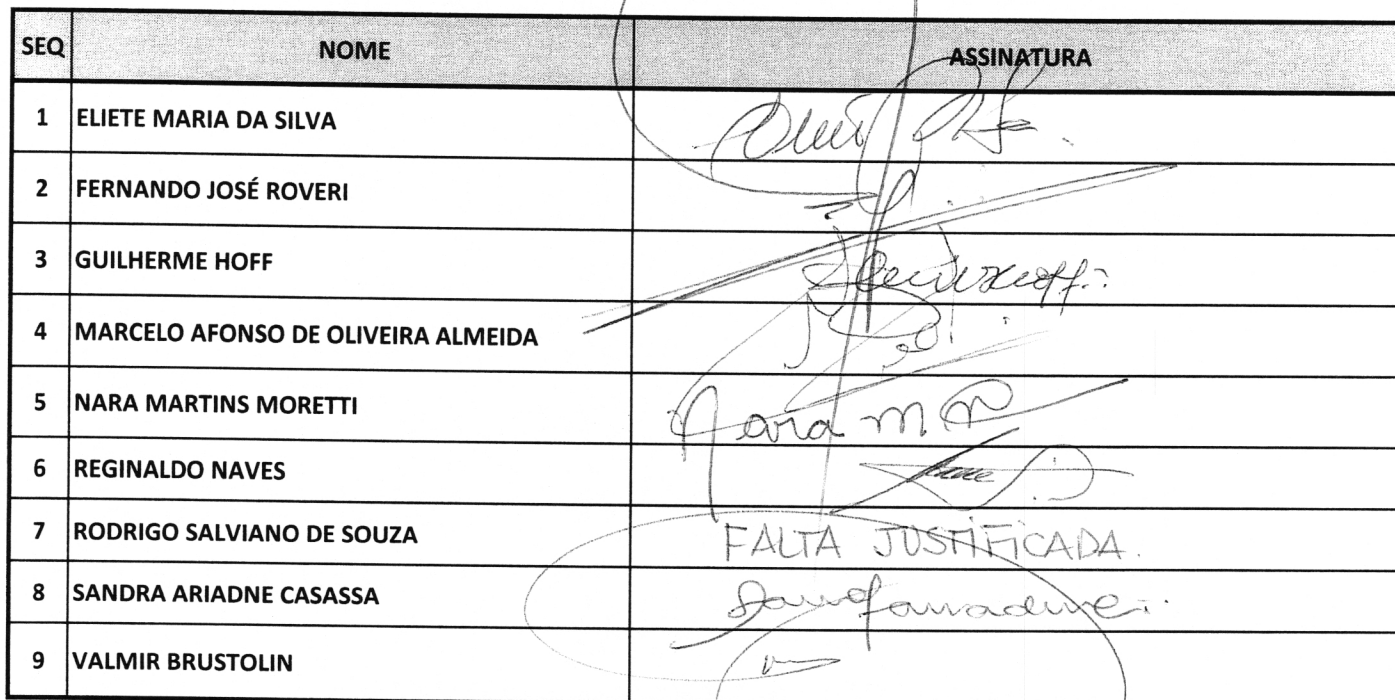 SEQ NOME ASSINATURA
1 ELIETE MARIA DA SILVA
2 FERNANDO JOSÉ ROVERI
3 GUILHERME HOFF
4 MARCELO AFONSO DE OLIVEIRA ALMEIDA
5 NARA MARTINS MORETTI Nara M
6 REGINALDO NAVES
7 RODRIGO SALVIANO DE SOUZA FALTA JUSTIFICADA.
8 SANDRA ARIADNE CASASSA
9 VALMIR BRUSTOLIN